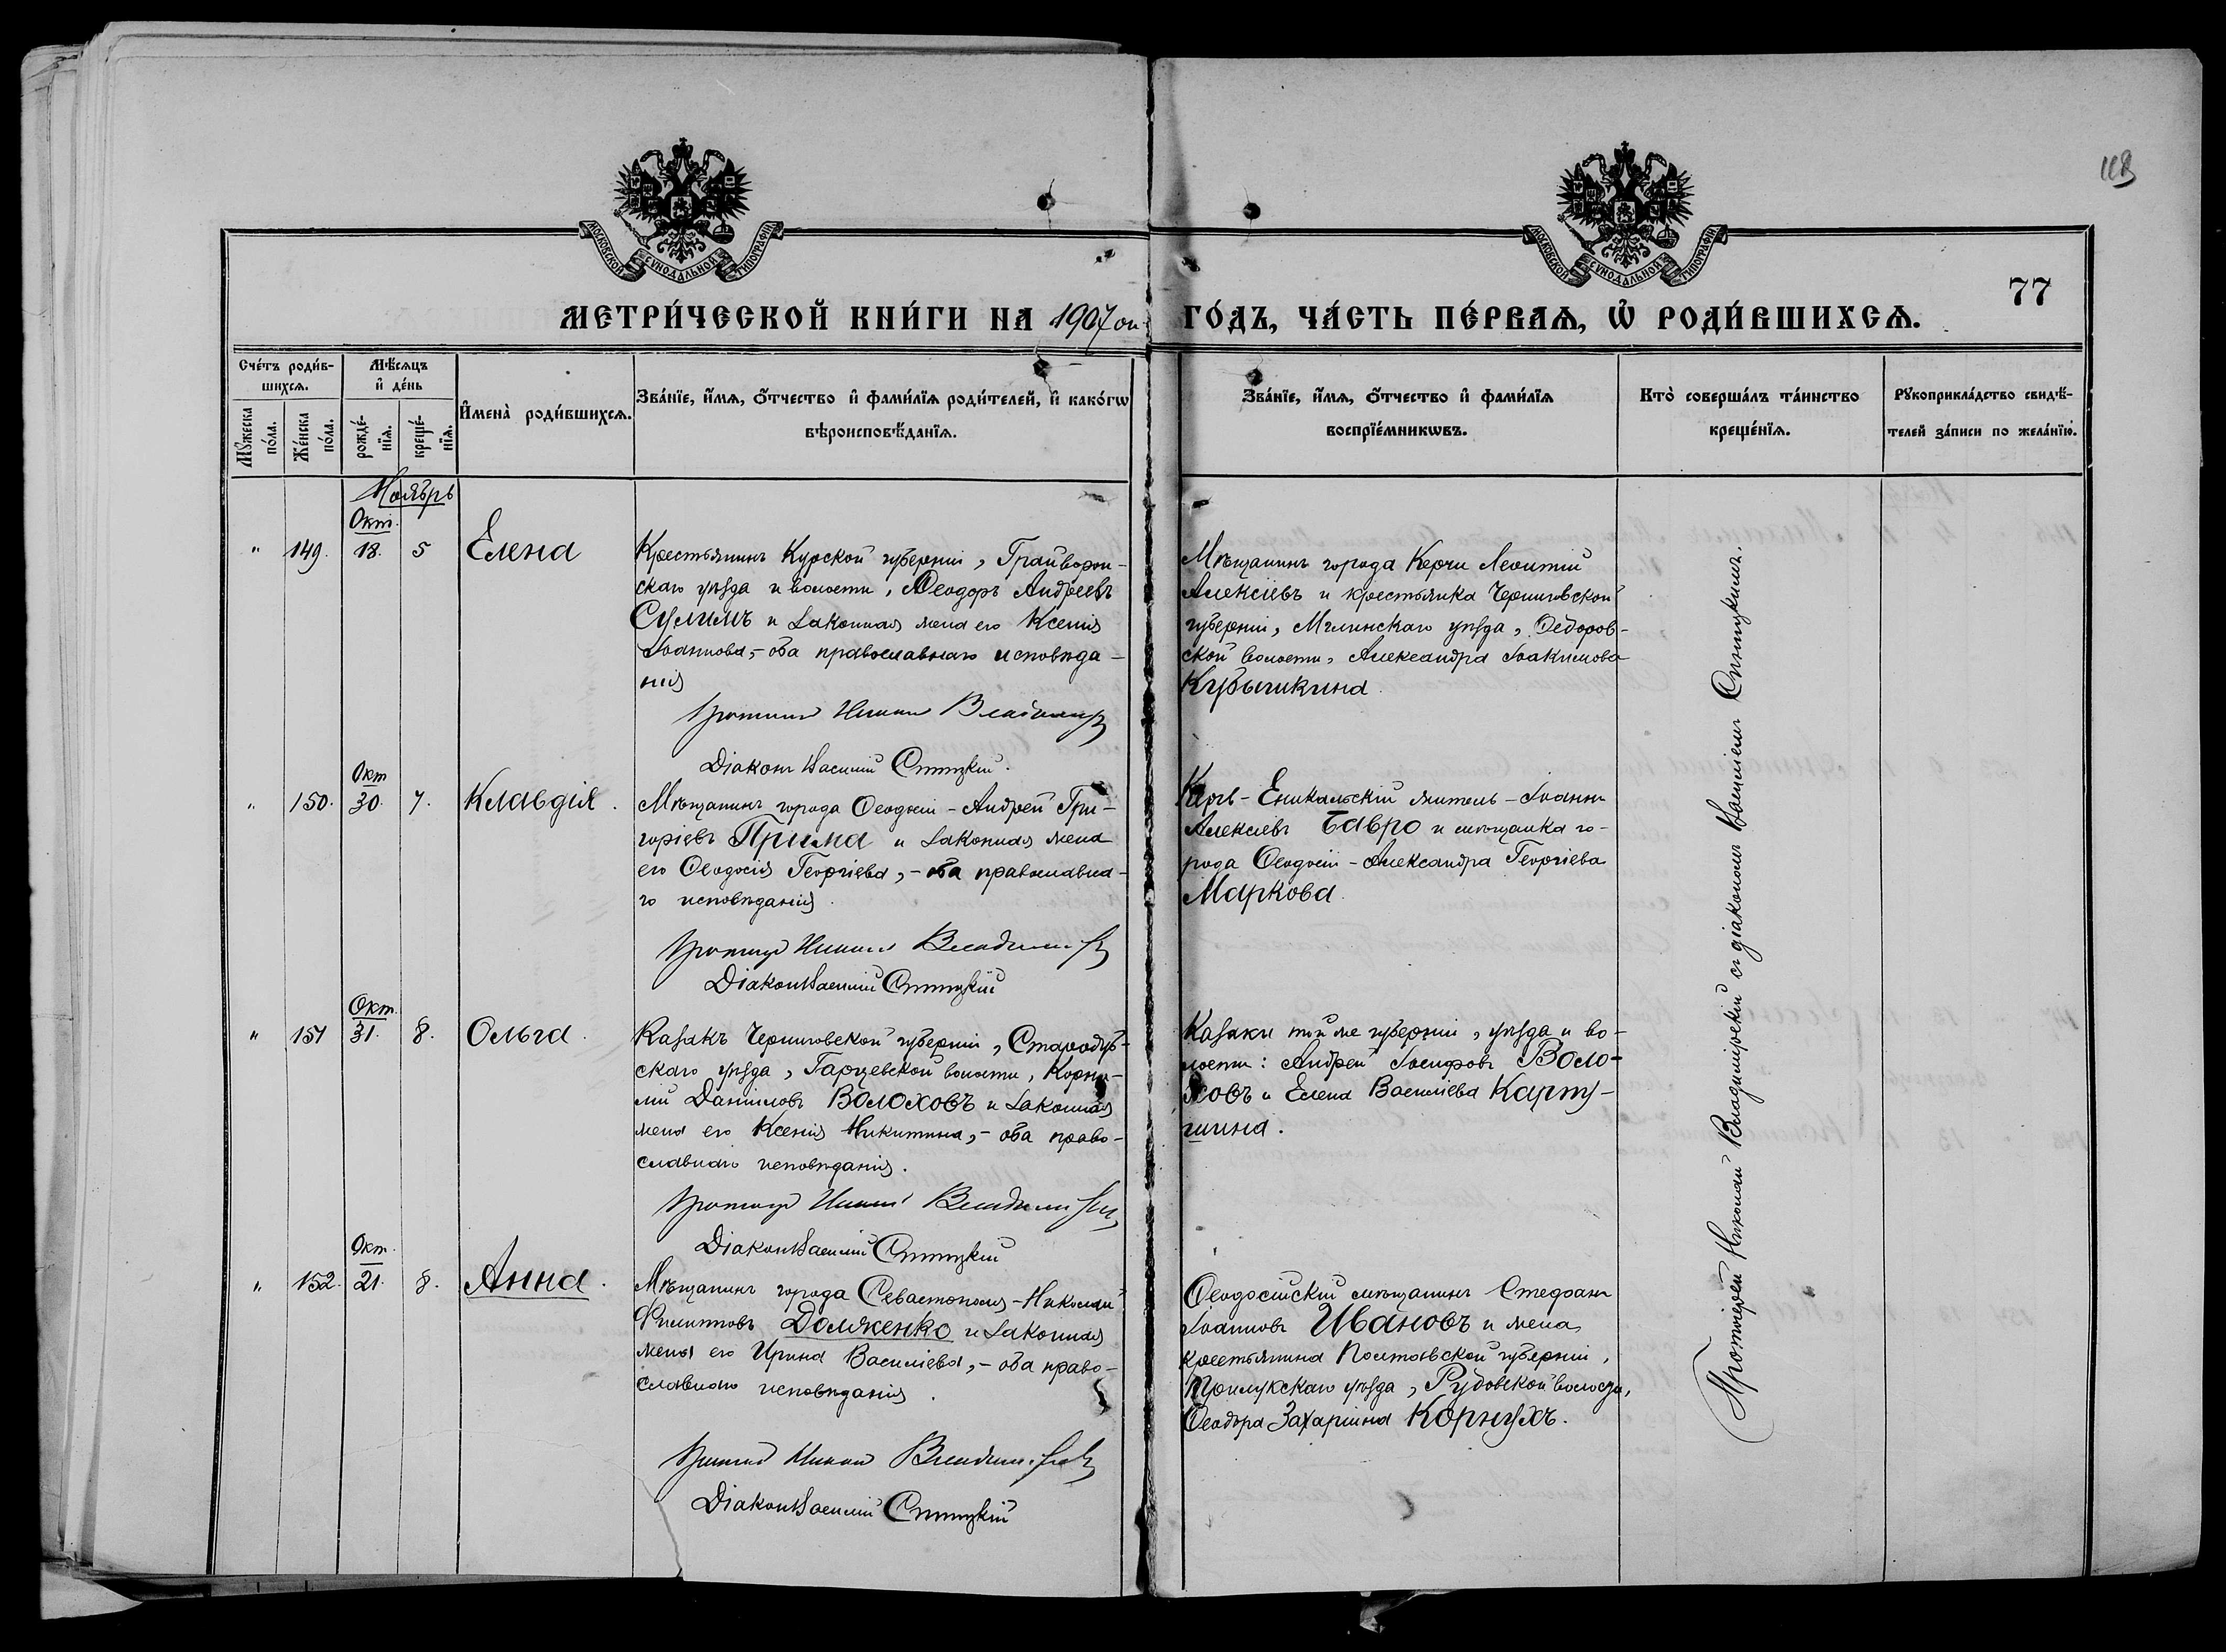 118
МОСКОВСКОЙ СѴНОДАЛЬНОЙ ТИПОГРАФІИ
МОСКОВСКОЙ СѴНОДАЛЬНОЙ ТИПОГРАФІИ
77
МЕТРИ́ЧЕСКОЙ КНИ́ГИ НА 1907 ой ГО́ДЪ, ЧА́СТЬ ПЕ́РВАѦ, Ѡ҆ РОДИ́ВШИХСѦ.
Сче́тъ роди́в-
шихсѧ.
Мꙋ́жеска по́ла.
Же́нска по́ла.
Мѣ́сѧцъ
и҆ де́нь
рожде́-
нїѧ.
креще́-
нїѧ.
И҆мена̀ роди́вшихсѧ.
Зва́нїе, и҆́мѧ, ѻ҆́тчество и҆ фами́лїѧ роди́телей, и҆ како́гѡ
вѣроисповѣ́данїѧ.
Зва́нїе, и҆́мѧ, ѻ҆́тчество и҆ фами́лїѧ
воспрїе́мникѡвъ.
Кто̀ соверша́лъ та́инство
креще́нїѧ.
Рꙋкоприкла́дство свидѣ́-
телей за́писи по жела́нїю.
Ноябрь
Окт.
" 149. 18. 5 Елена
Крестьянинъ Курской губерніи, Грайворон-
скаго уѣзда и волости, Ѳеодоръ Андреевъ
Сулимъ и законная жена его Ксенія
Іоаннова,- оба православнаго исповѣда-
нія
Протоіерей Николай Владимірскій
Діаконъ Василій Спицкій.
Мѣщанинъ города Керчи Леонтій
Алексіевъ и крестьянка Черниговской
губерніи, Мглинскаго уѣзда, Ѳедоров-
ской волости, Александра Іоакимова
Кубышкина.
Окт
" 150. 30. 7. Клавдія.
Мѣщанинъ города Ѳеодосіи - Андрей Гри-
горіевъ Прима и законная жена
его Ѳеодосія Георгіева,- оба православна-
го исповѣданія.
Протоіерей Николай Владимірскій
Діаконъ Василій Спицкій
Керчь-Еникальскій житель - Іоаннъ
Алексіевъ Бавро и мѣщанка го-
рода Ѳеодосіи - Александра Георгіева
Маркова.
Окт.
" 151 31. 8. Ольга.
Казакъ Черниговской губерніи, Стародуб-
скаго уѣзда, Гарцевской волости, Корни-
лій Даниловъ Волоховъ и законная
жена его Ксенія Никитина,- оба право-
славнаго исповѣданія.
Протоіерей Николай Владимірскій
Діаконъ Василій Спицкій
Казаки той же губерніи, уѣзда и во-
лости: Андрей Іосифовъ Воло-
ховъ и Елена Василіева Карту-
шина.
Окт.
" 152. 21. 8. Анна.
Мѣщанинъ города Севастополя - Николай
Филипповъ Долженко и законная
жена его Ирина Василіева,- оба право-
славнаго исповѣданія.
Протоіерей Николай Владимірскій
Діаконъ Василій Спицкій
Ѳеодосійскій мѣщанинъ Стефанъ
Іоанновъ Ивановъ и жена
крестьянина Полтавской губерніи,
Прилукскаго уѣзда, Рудовской волости,
Ѳеодора Захаріина Корнухъ.
Протоіерей Николай Владимірскій съ діакономъ Василіемъ Спицкимъ.